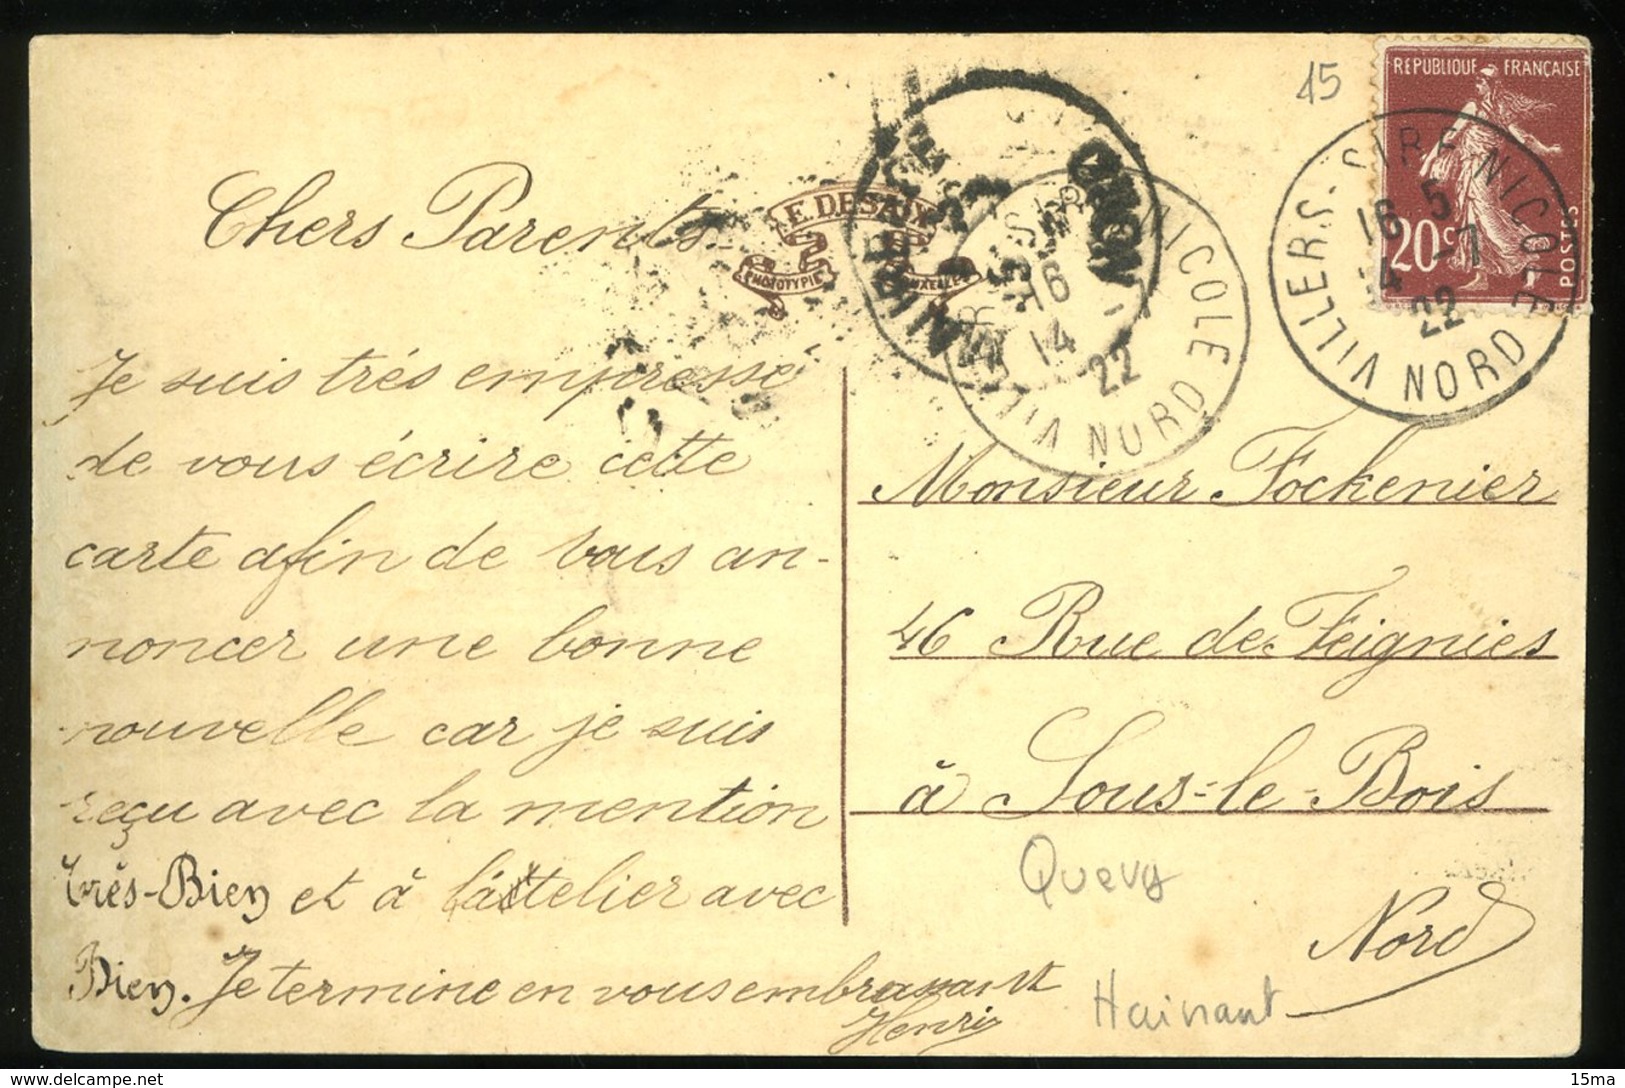 15
REPUBLIQUE FRANÇAISE
20c
POSTES
VILLERS-SIRE-NICOLE
16 5
14 -7
22
NORD
E. DESAIX
PHOTOTYPIE
BRUXELLES
NORD
NICOLE
16
14 -
22
NORD
Chers Parents
Je suis trés empressé
de vous écrire cette
carte afin de vous an-
noncer une bonne
nouvelle car je suis
reçu avec la mention
très-Bien et à l'atelier avec
Bien. Je termine en vous embrassant
Henri
Monsieur Fockenier
46 Rue de Feignies
à Sous-le-Bois
Quevy
Nord
Hainaut
15ma